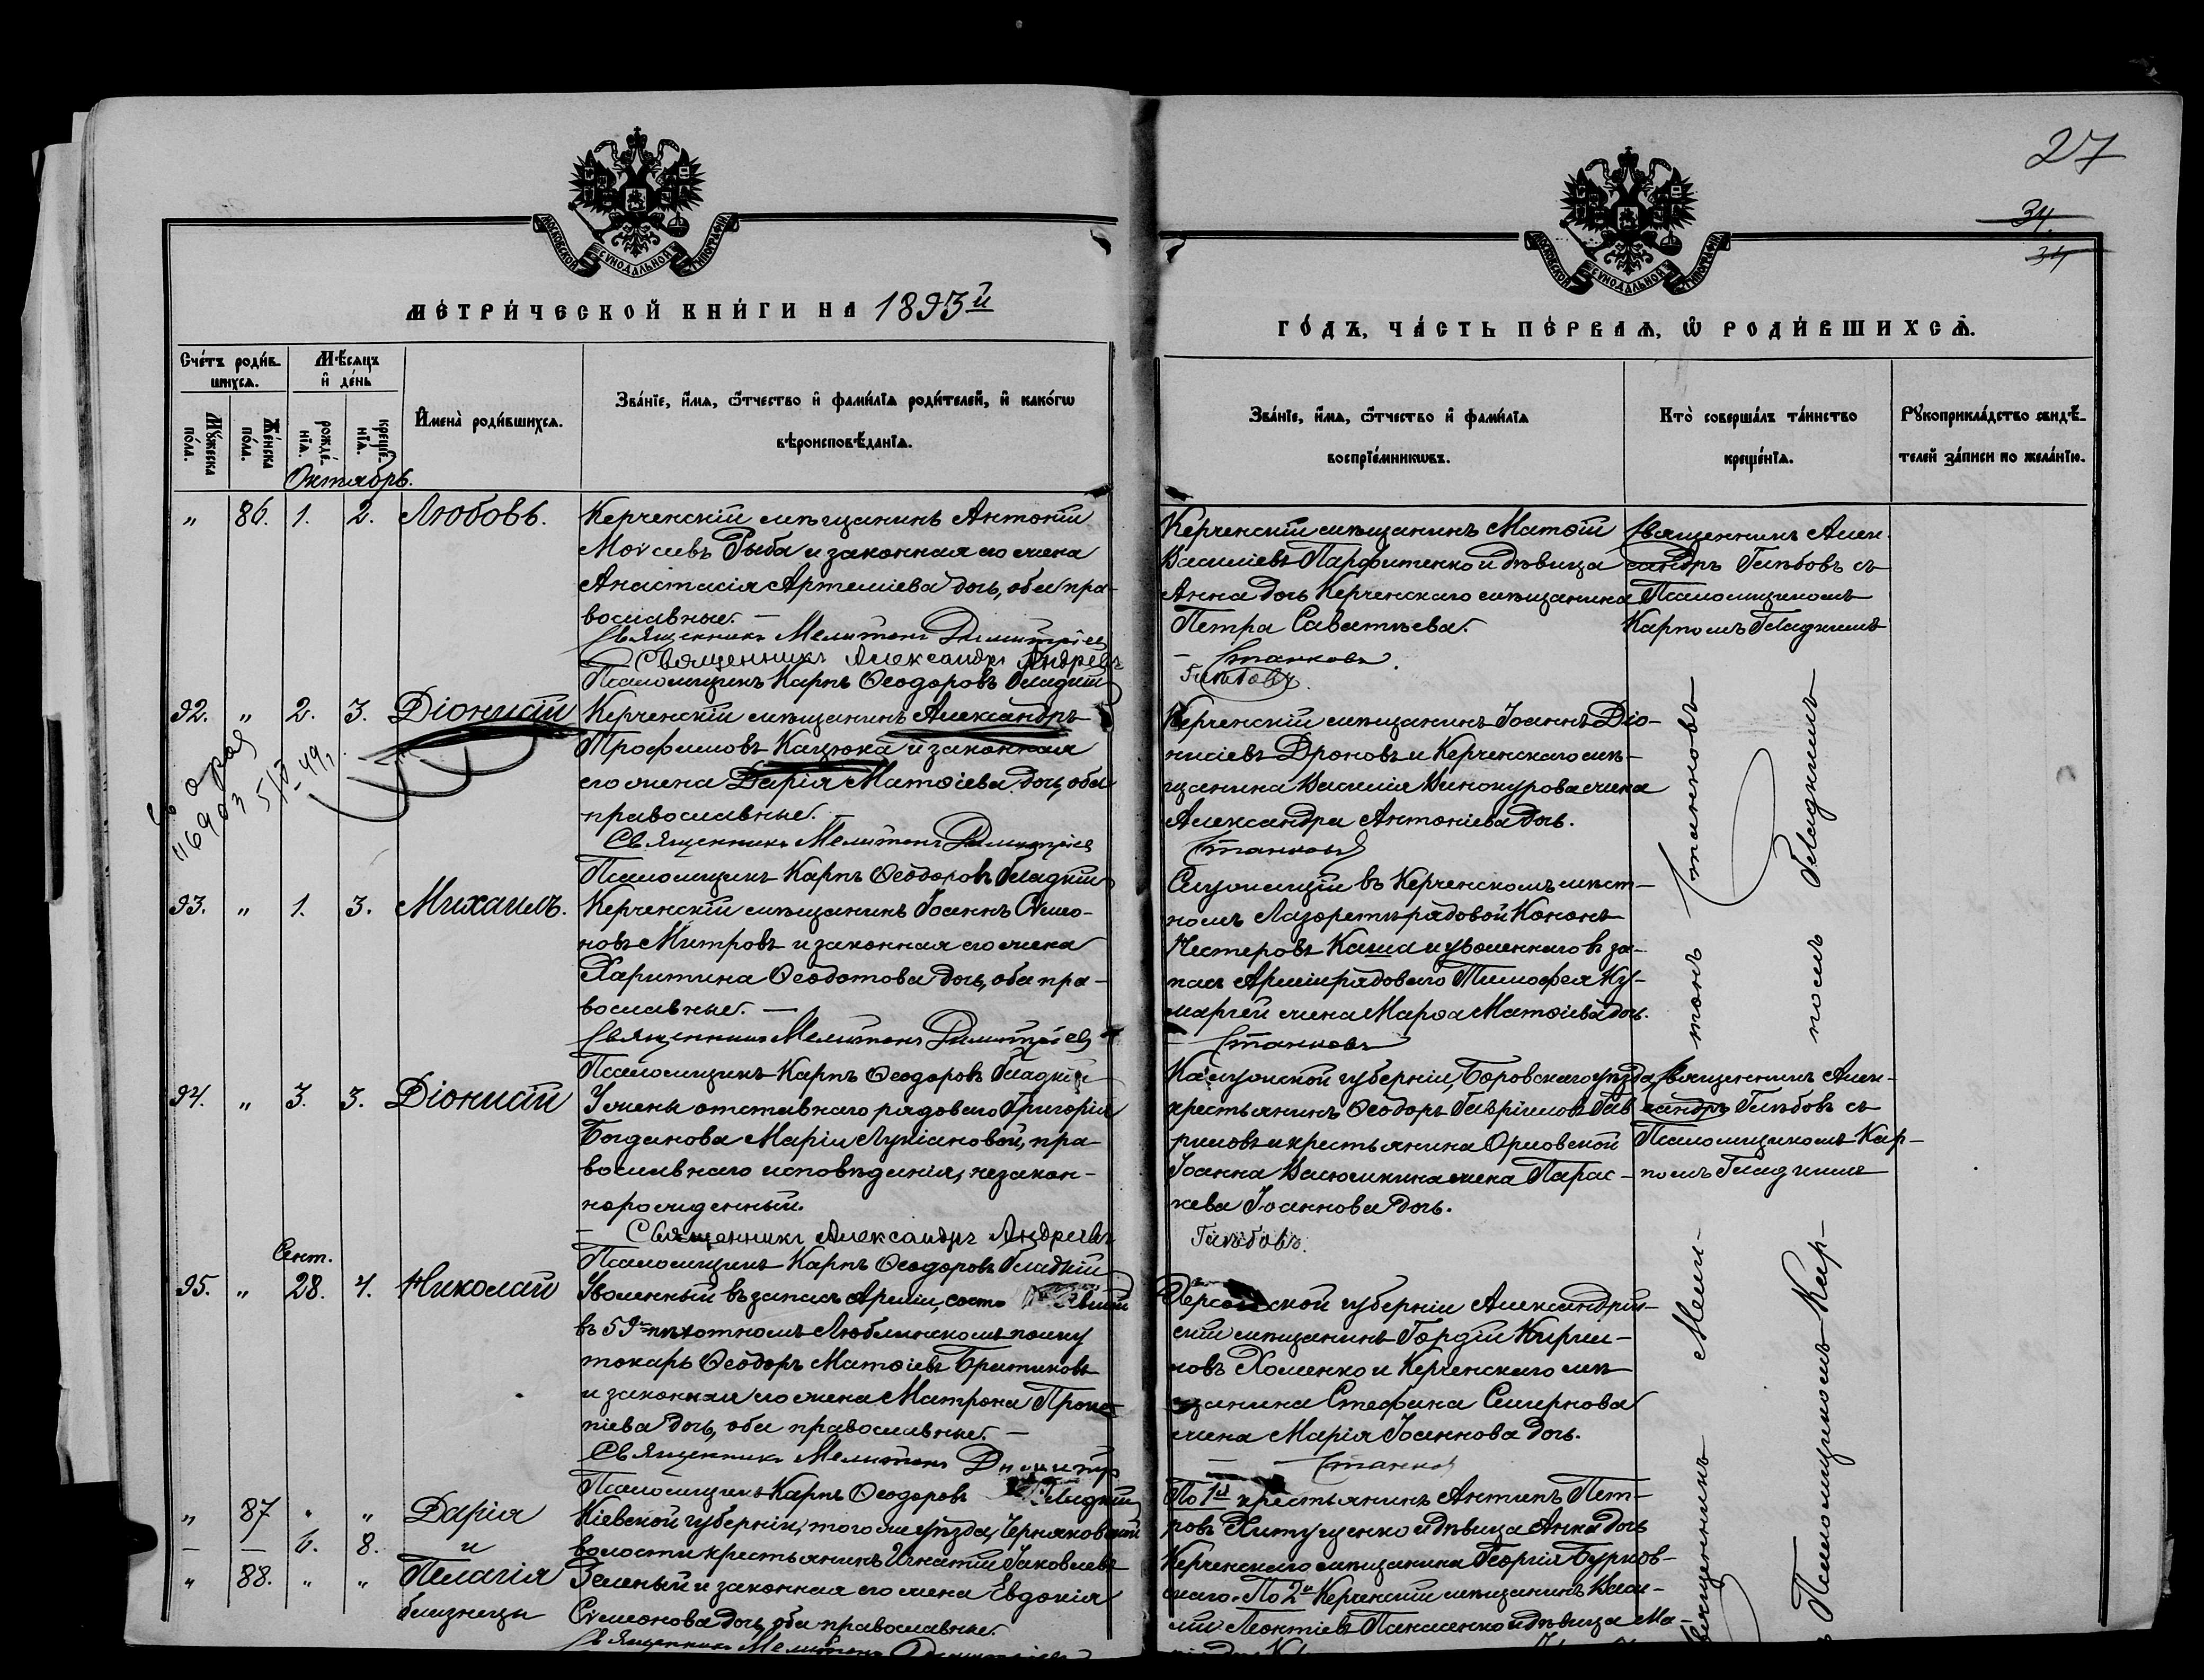 27
34.
34
МОСКОВСКОЙ СѴНОДАЛЬНОЙ ТИПОГРАФІИ
МОСКОВСКОЙ СѴНОДАЛЬНОЙ ТИПОГРАФІИ
МЕТРИЧЕСКОЙ КНИГИ НА 1893й
ГОДЪ, ЧАСТЬ ПЕРВАЯ, Ѡ РОДИВШИХСЯ.
Счетъ родив-
шихся.
Мѣсяцъ
и день
Мужеска пола.
Женска пола.
рожде-нія.
креще-нія.
Имена родившихся.
Званіе, имя, ѿчество и фамилія родителей, и какогѡ
вѣроисповѣданія.
Званіе, имя, ѿчество и фамилія
воспріемникѡвъ.
Кто совершалъ таинство
крещенія.
Рукоприкладство свидѣ-
телей записи по желанію.
Октябрь.
" 86. 1. 2. Любовь.
Керченскій мѣщанинъ Антоній
Моѵсеевъ Рыба и законная его жена
Анастасія Артеміева дочь, оба пра-
вославные. —
Священникъ Мелитонъ Димитріев
Священникъ Александръ Андреевъ
Псаломщикъ Карпъ Ѳеодоровъ Гладкій
Керченскій мѣщанинъ Матѳій
Василіевъ Парфименко и дѣвица
Анна дочь Керченскаго мѣщанина
Петра Саватѣева.
Станковъ.
Глѣбовъ.
Священникъ Алек-
сандръ Глѣбовъ съ
Псаломщикомъ
Карпомъ Гладкимъ
92. " 2. 3. Діонисій
Керченскій мѣщанинъ Александръ
Трофимовъ Кацюка и законная
его жена Дарія Матѳіева дочь, оба
православные. —
Священникъ Мелитонъ Димитріев
Псаломщикъ Карпъ Ѳеодоровъ Гладкій
Керченскій мѣщанинъ Іоаннъ Діо-
нисіевъ Дроновъ и Керченскаго мѣ-
щанина Василія Винокурова жена
Александра Антоніева дочь.
Станковъ
93. " 1. 3. Михаилъ.
Керченскій мѣщанинъ Іоаннъ Сѵмео-
новъ Митровъ и законная его жена
Харитина Ѳеодотова дочь, оба пра-
вославные. —
Священникъ Мелитонъ Димитріев
Псаломщикъ Карпъ Ѳеодоровъ Гладкій
Служащій въ Керченскомъ мѣст-
номъ Лазаретѣ рядовой Кононъ
Нестеровъ Каша и уволеннаго въ за-
пасъ Арміи рядоваго Тимофея Ку-
маргей жена Марѳа Матѳіева дочь.
Станковъ
94. " 3. 3. Діонисій
У жены отставнаго рядоваго Григорія
Богданова Маріи Лукіановой, пра-
вославнаго исповѣданія, незакон-
норожденный.
— Священникъ Александръ Андреевъ
Псаломщикъ Карпъ Ѳеодоровъ Гладкій
Калужской губерніи, Боровскаго уѣзда
крестьянинъ Ѳеодоръ Гавріиловъ Гав-
риловъ и крестьянина Орловской
Іоанна Васюшкина жена Парас-
кева Іоаннова дочь.
Глѣбовъ.
Священникъ Алек-
сандръ Глѣбовъ съ
Псаломщикомъ Кар-
помъ Гладкимъ
Сент.
95. " 28. 4. Николай
Уволенный въ запасъ Арміи,
въ 59м пѣхотномъ Люблинскомъ полку
токарь Ѳеодоръ Матѳіевъ Братиковъ
и законная его жена Матрона Проко-
піева дочь, оба православные. —
Священникъ Мелитонъ Димитр
Псаломщикъ Карпъ Ѳеодоровъ Гладкій
Херсонской губерніи Александрій-
скій мѣщанинъ Гордій Кирил-
ловъ Хоменко и Керченскаго мѣ-
щанина Стефана Смирнова
жена Марія Іоаннова дочь.
— Станков
" 87 " " Дарія
— — 6. 8. и
" 88. " " Пелагія
близнецы
Кіевской губерніи, того же уѣзда, Черняховской
волости крестьянинъ Игнатій Іаковлевъ
Зеленый и законная его жена Евдокія
Сѵмеонова дочь, оба православные.
Священникъ Мелитонъ Димитріев
По 1й крестьянинъ Антипъ Пет-
ровъ Хитущенко и дѣвица Анна дочь
Керченскаго мѣщанина Георгія Бурков-
скаго. По 2й Керченскій мѣщанинъ Васи-
лій Леонтіевъ Панасенко и дѣвица Ма-
Священникъ Мели-
тонъ Станковъ
съ Псаломщикомъ Кар-
помъ Гладкимъ